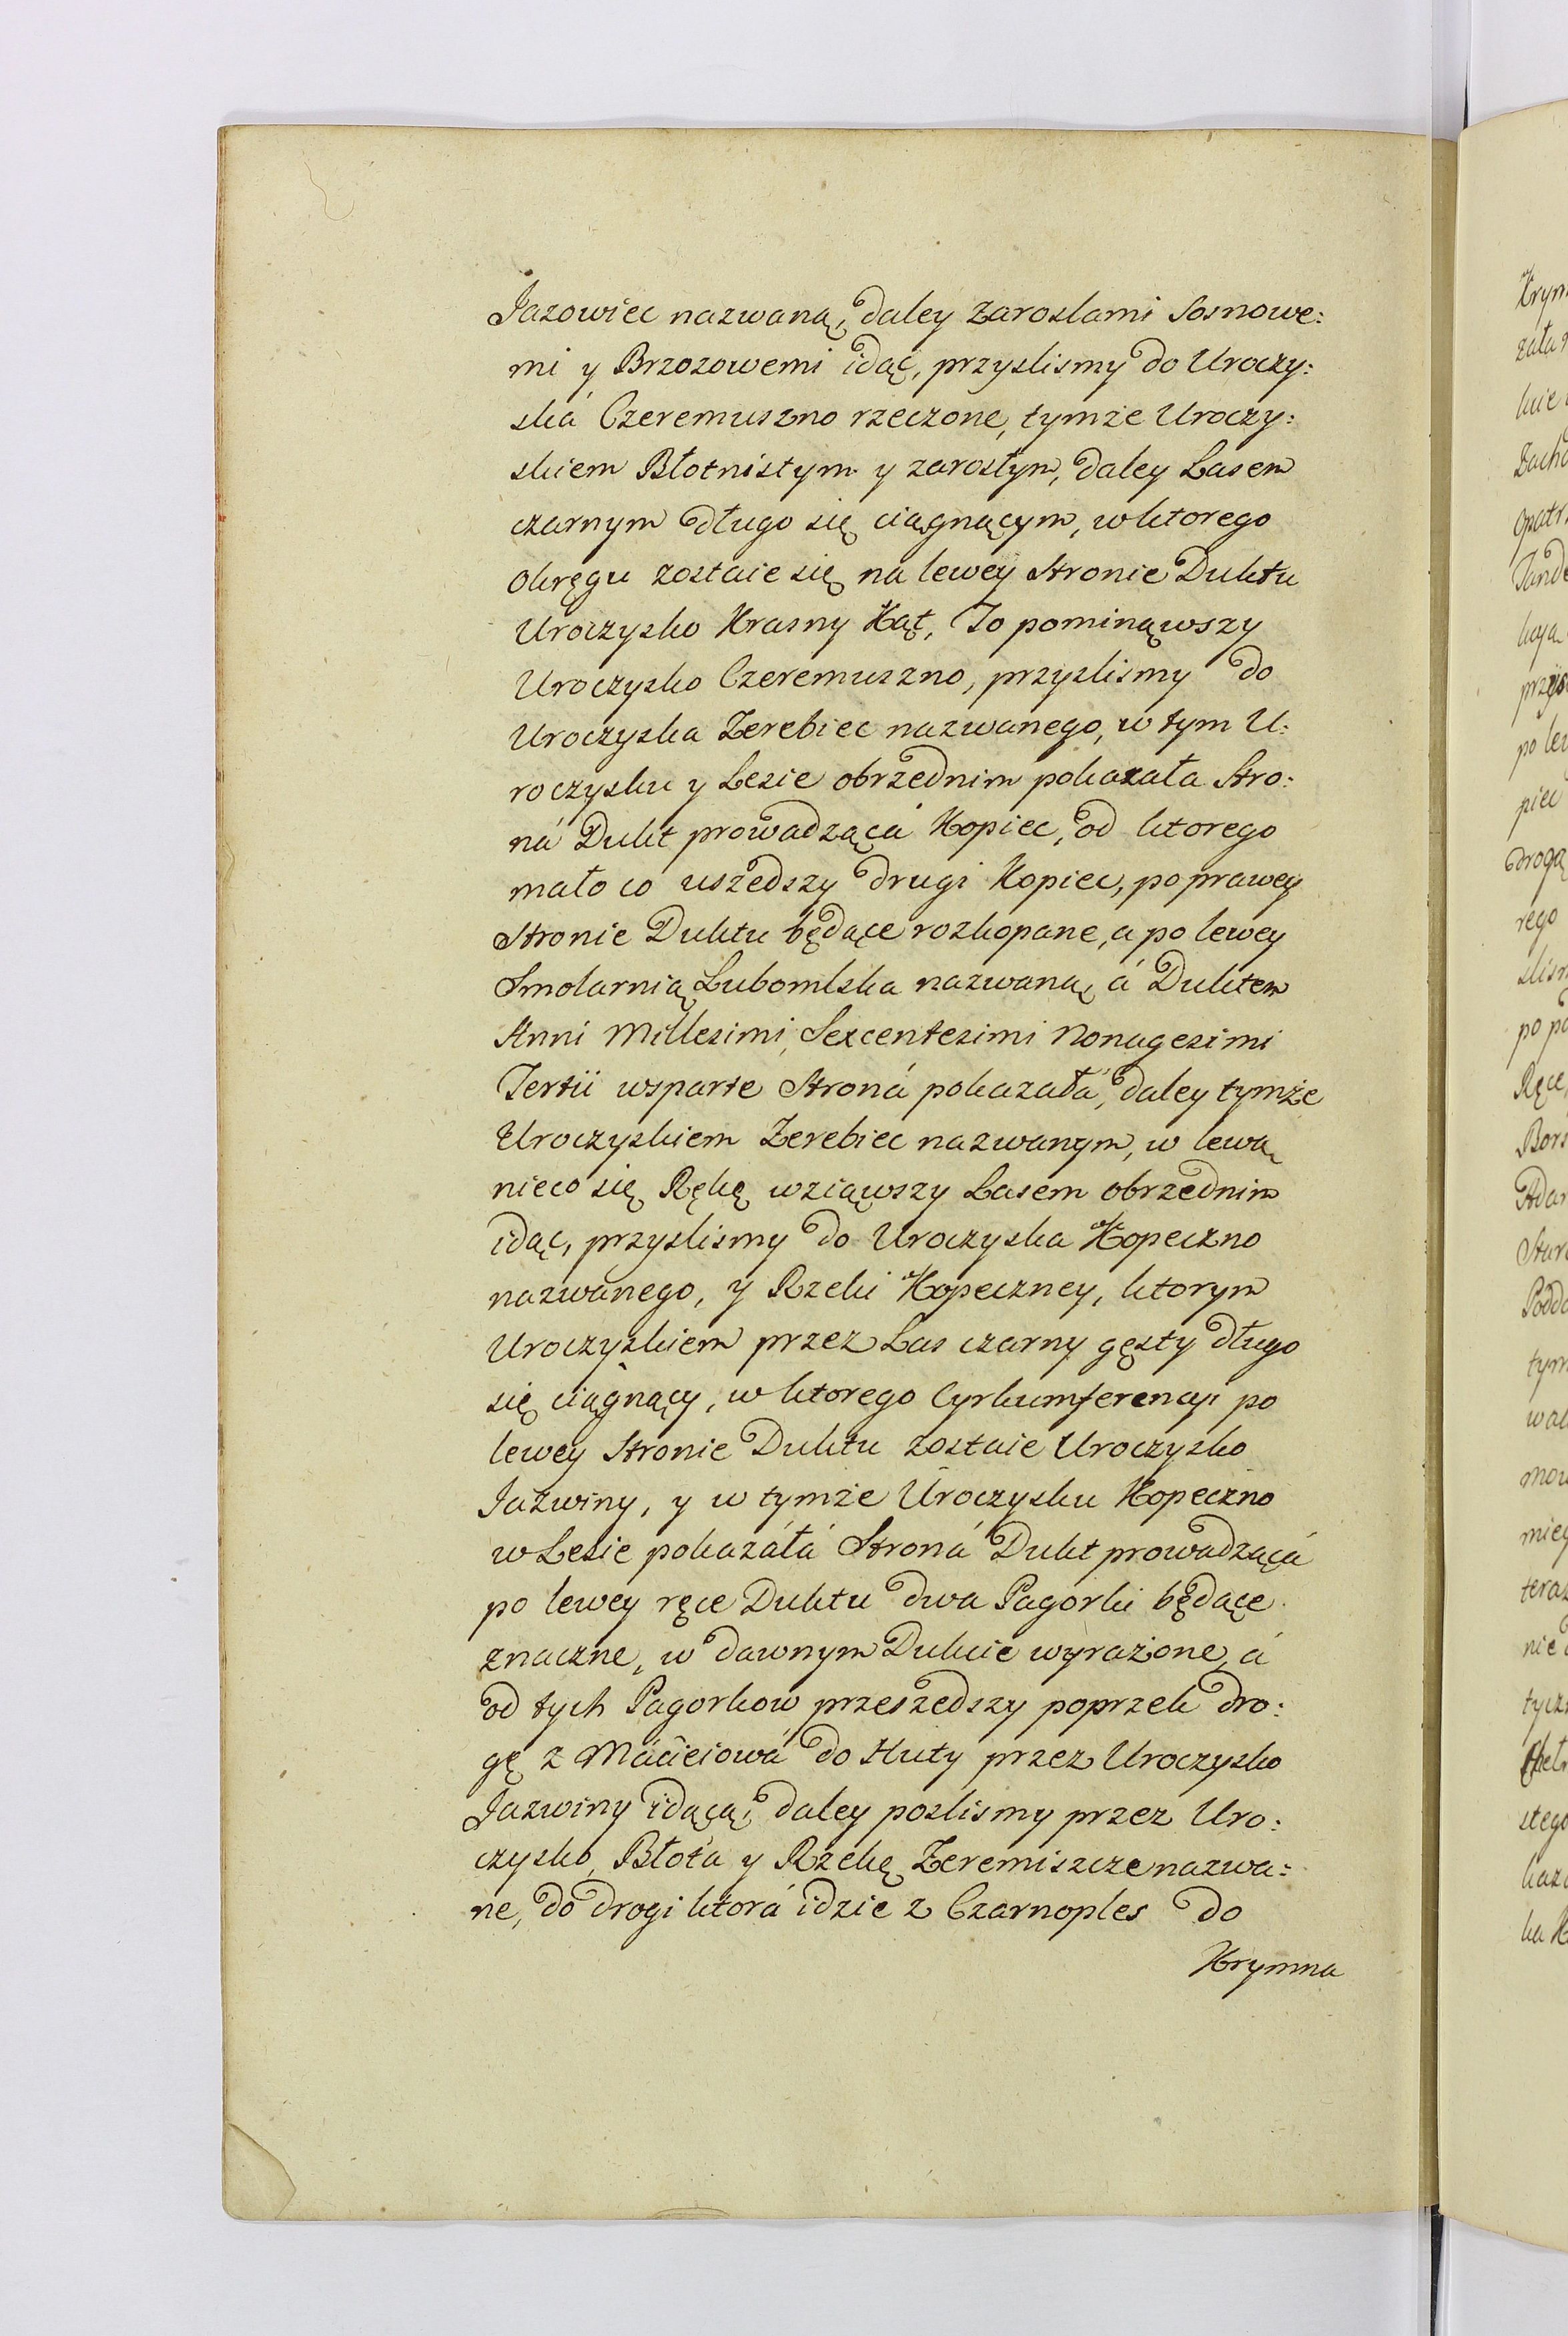 Jazowiec nazwaną, daley Zaroslami Sosnowe:
mi y Brzozowemi idąc, przyslismy do Uroczy:
ská Czeremuszno rzeczone, tymże Uroczy:
skiem Błotnistym y zarosłym, daley Lasem
czarnym długo się ciągnącym, w ktorego
okręgu zostaie się na lewey Stronie Duktu
Uroczysko Krasny Kąt, To pominąwszy
Uroczysko Czeremuszno, przyslismy do
Uroczyska Zerebiec nazwanego, w tym U:
roczysku y Lesie obrzednim pokazała Stro:
ná Dukt prowadzącá Kopiec, od ktorego
mało co uszedszy drugi Kopiec, po prawey
Stronie Duktu będące rozkopane, a po lewey
Smolarnią Lubomlska nazwaną, á Duktem
Anni Millesimi, Sexcentesimi Nonagesimi
Tertii wsparte Stroná pokazałá, daley tymże
Uroczyskiem Zerebiec nazwanym, w lewą
nieco się Rękę wziąwszy Lasem obrzednim
idąc, przyslismy do Uroczyska Kopeczno
nazwanego, y Rzeki Kopeczney, ktorym
Uroczyskiem przez Las czarny gęsty długo
się ciągnący, w ktorego Cyrkumferencyi po
lewey Stronie Duktu zostaie Uroczysko
Jaźwiny, y w tymże Uroczysku Kopeczno
w Lesie pokazáłá Stroná Dukt prowadzącá
po lewey ręce Duktu dwa Pagorki będące
znaczne, w dawnym Dukcie wyrażone, á
od tych Pagorkow przeszedszy poprzek dro:
gę z Máciejowá do Huty przez Uroczysko
Jazwiny idącą, daley poslismy przez Uro:
czysko, Błota y Rzekę Zeremiszcze nazwa:
ne, do drogi ktorá idzie z Czarnoples do
Krymna